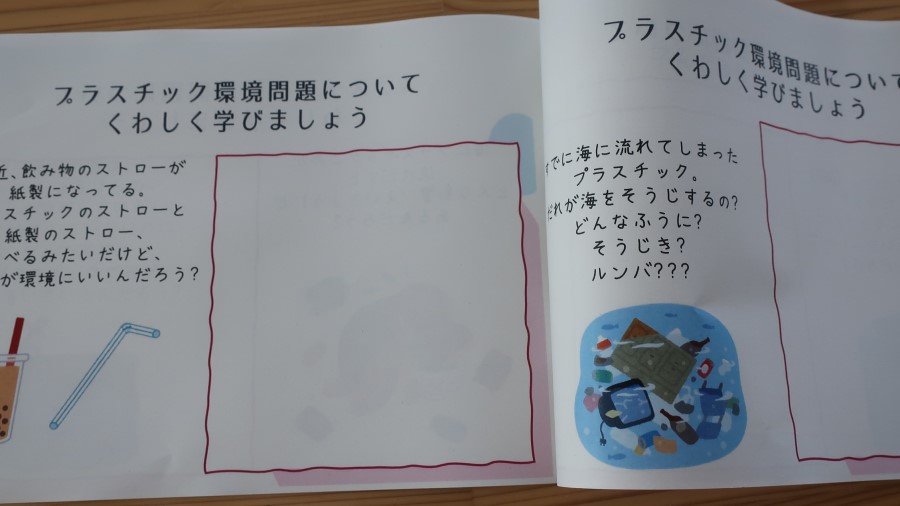 プラスチック環境問題について
くわしく学びましょう
近、飲み物のストローが
紙製になってる。
スチックのストローと
紙製のストロー、
べるみたいだけど、
が環境にいいんだろう?
プラスチック環境問題について
くわしく学びましょう
すでに海に流れてしまった
プラスチック。
だれが海をそうじするの?
どんなふうに?
そうじき?
ルンバ???